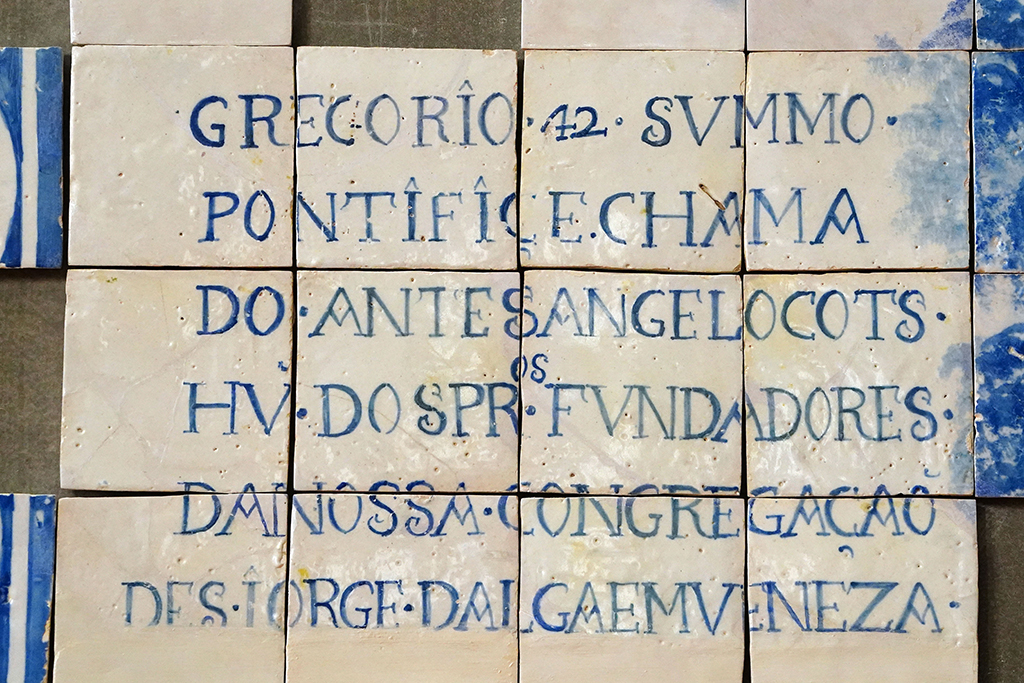 GREGORÎO · 42 · SVMMO ·
PONTÎFÎÇE.CHAMA
DO · ANTES ANGELOCOTS ·
HṼ · DOSPR^OS · FVNDADORES ·
DANOSSA · CONGREGAÇAÕ
DES · ÎORGE · DALGAEMVENEZA ·